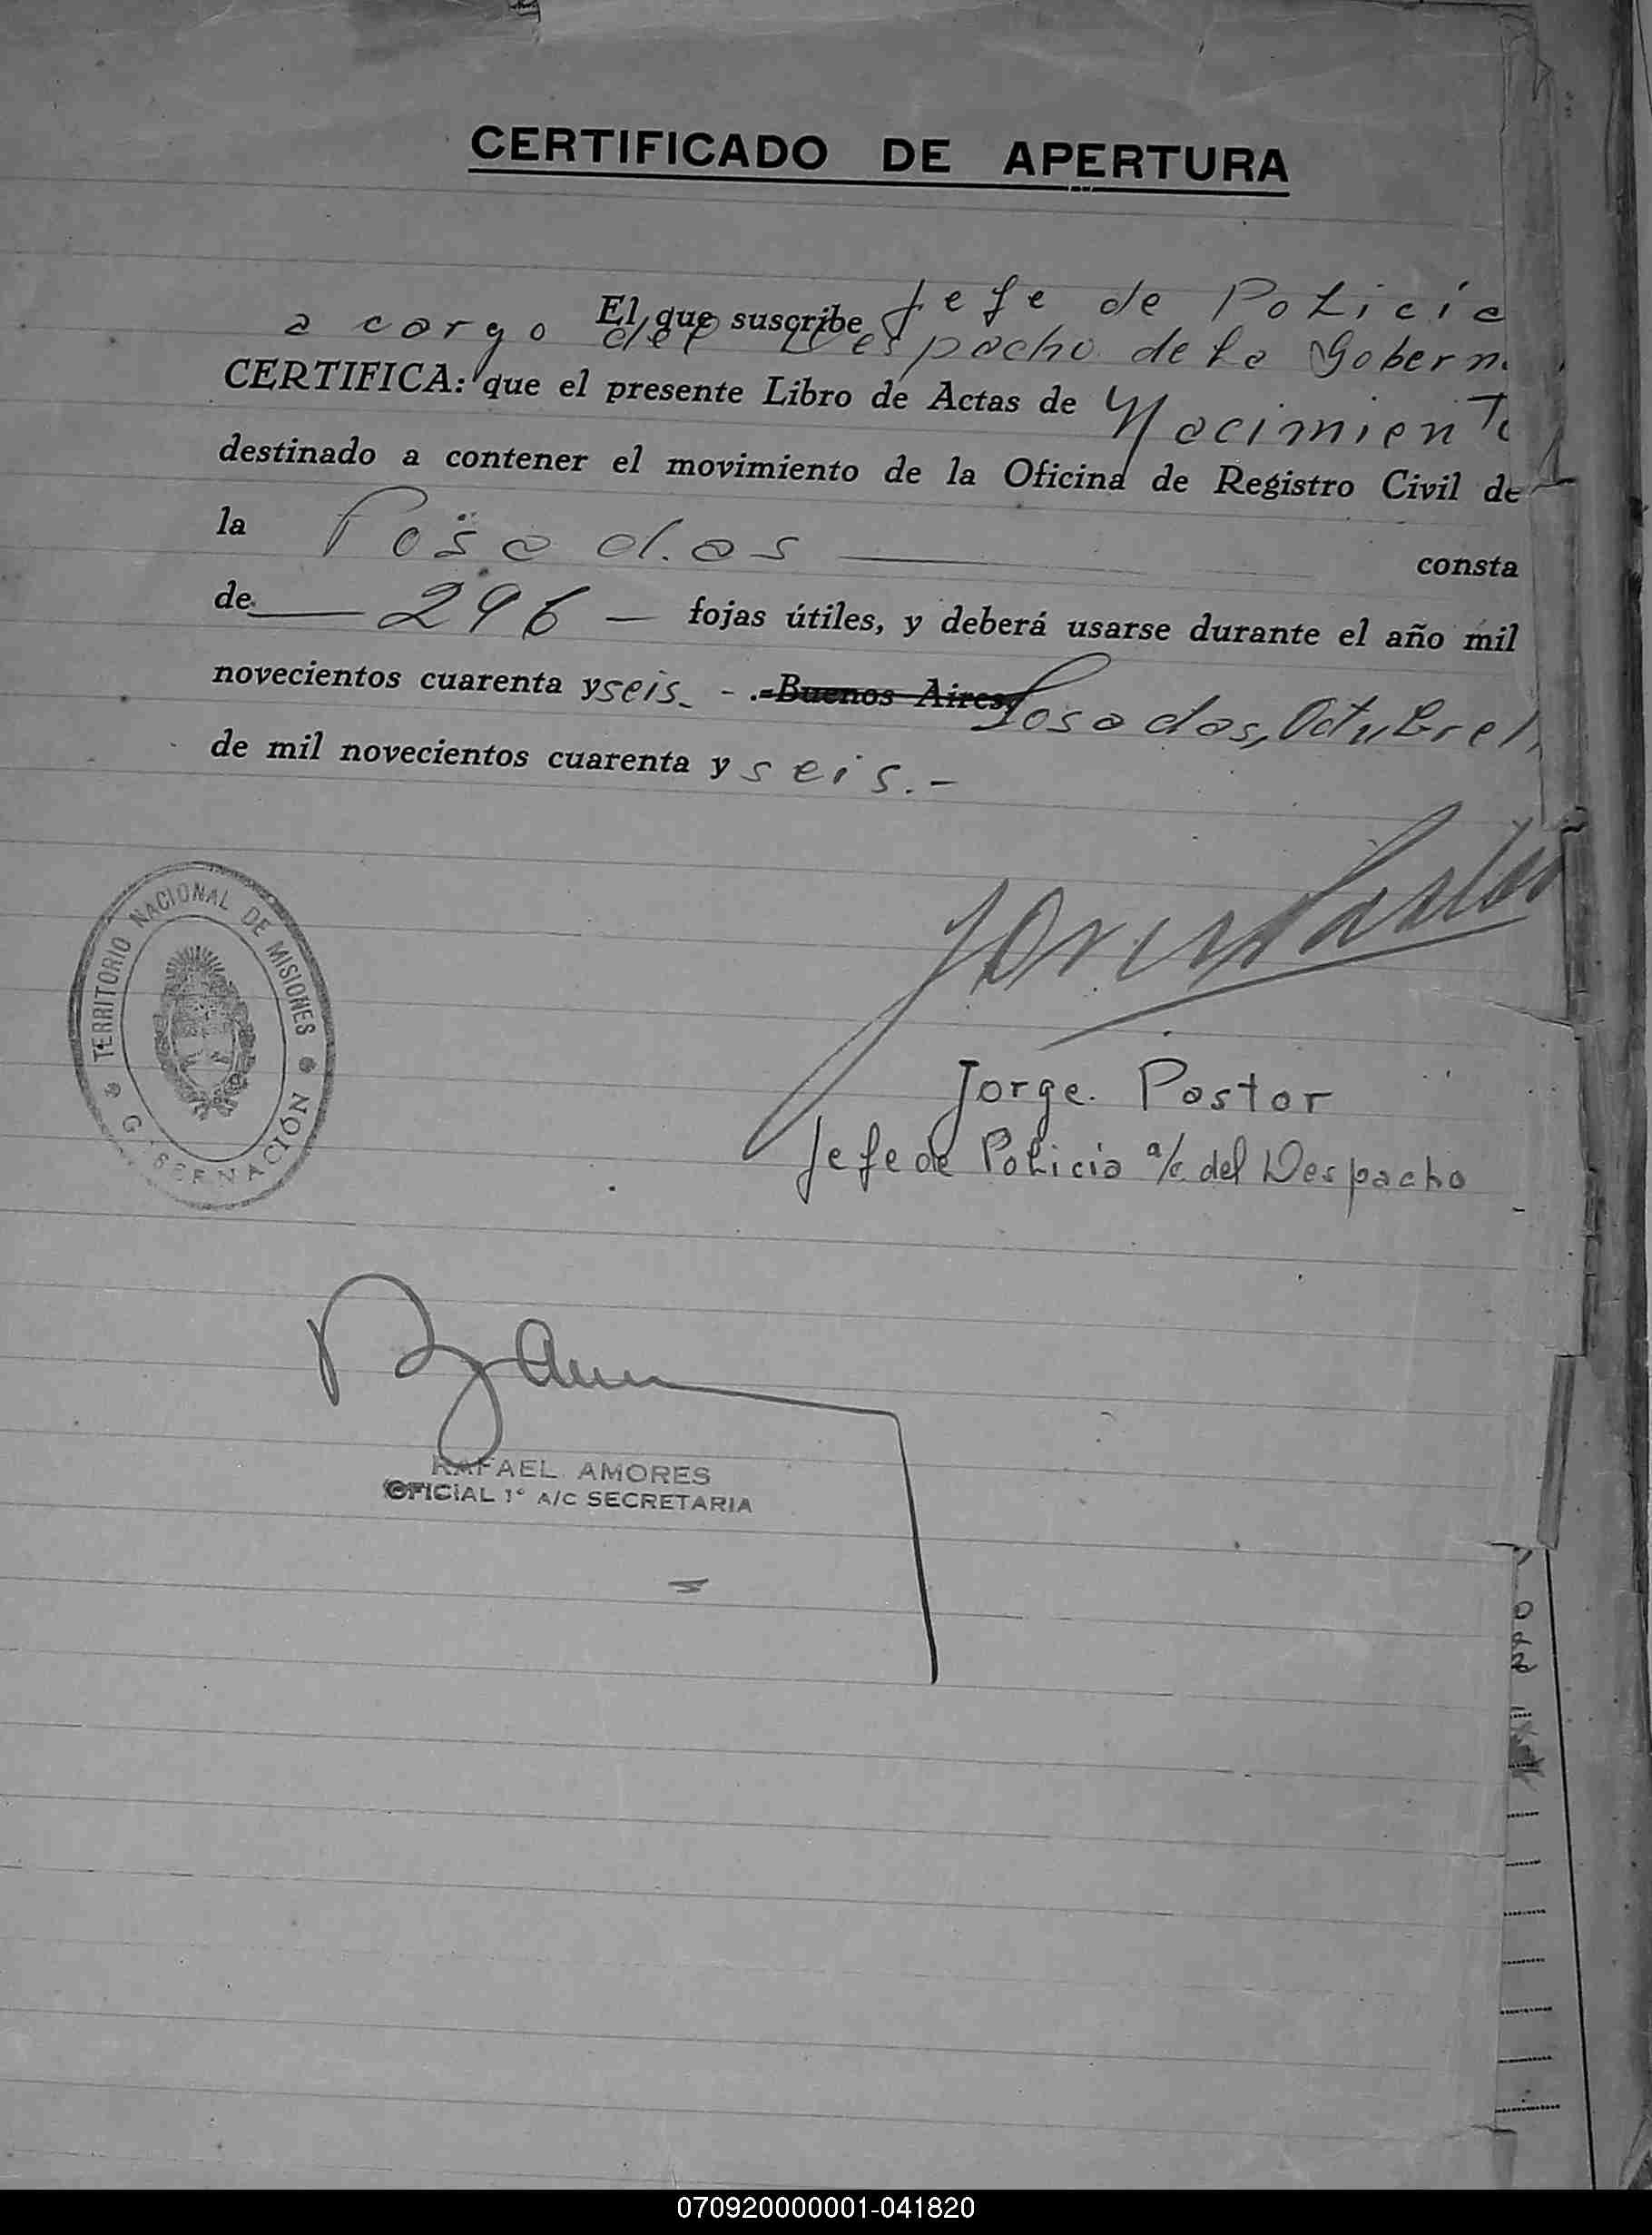 CERTIFICADO DE APERTURA
El que suscribe Jefe de Policía
a cargo del Despacho de la Gobern.
CERTIFICA: que el presente Libro de Actas de Nacimiento
destinado a contener el movimiento de la Oficina de Registro Civil de
la Posadas consta
de 296 — fojas útiles, y deberá usarse durante el año mil
novecientos cuarenta y seis. - .-Buenos Aires, Posadas, Octubre
de mil novecientos cuarenta y seis.-
TERRITORIO NACIONAL DE MISIONES
GOBERNACIÓN
Jorge Pastor
Jorge. Pastor
Jefe de Policia a/c. del Despacho
RAFAEL AMORES
OFICIAL 1° A/C SECRETARIA
070920000001-041820